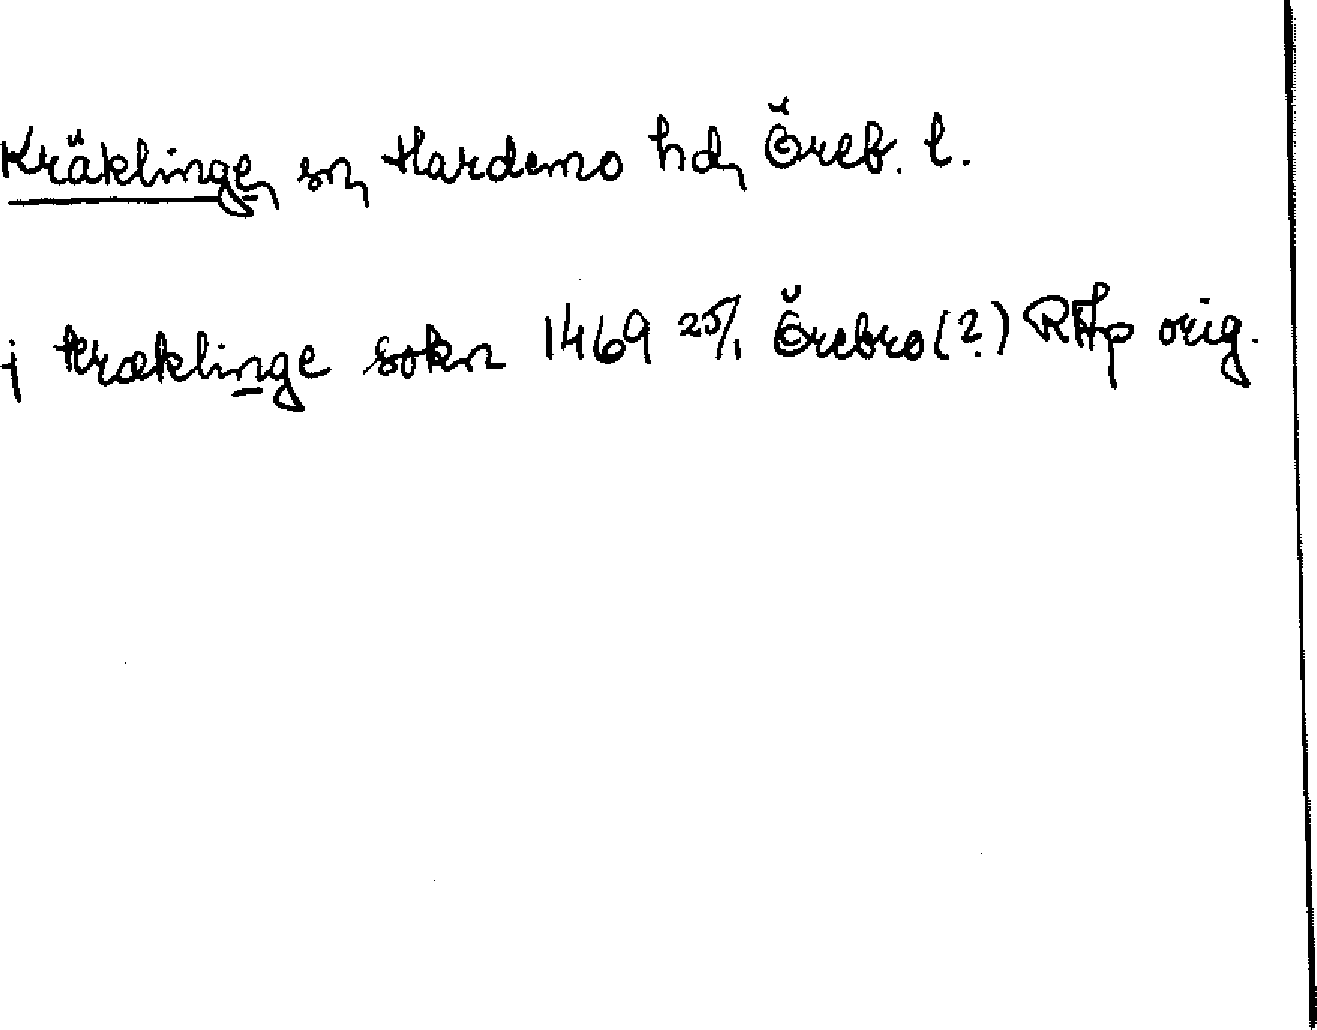 Kräklinge, sn, Hardemo hd, Öreb. l.
j kræklinge sokn 1469 25/1 Örebro (?) RAp orig.